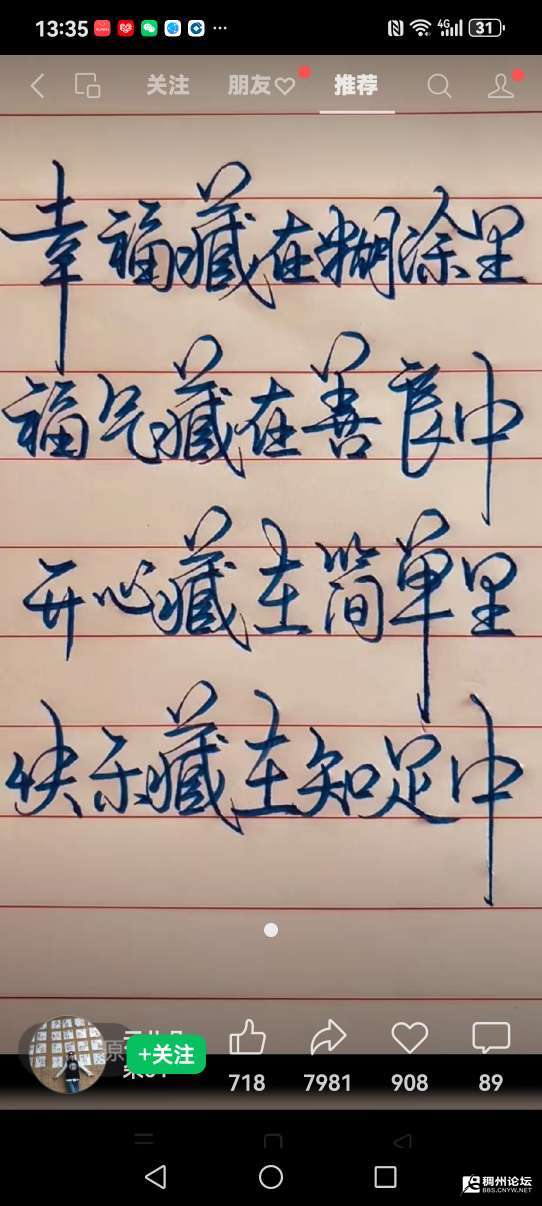 13:35
4G
31
关注
朋友
推荐
幸福藏在糊涂里
福气藏在善良中
开心藏在简单里
快乐藏在知足中
原
+关注
718
7981
908
89
稠州论坛
BBS.CNYW.NET